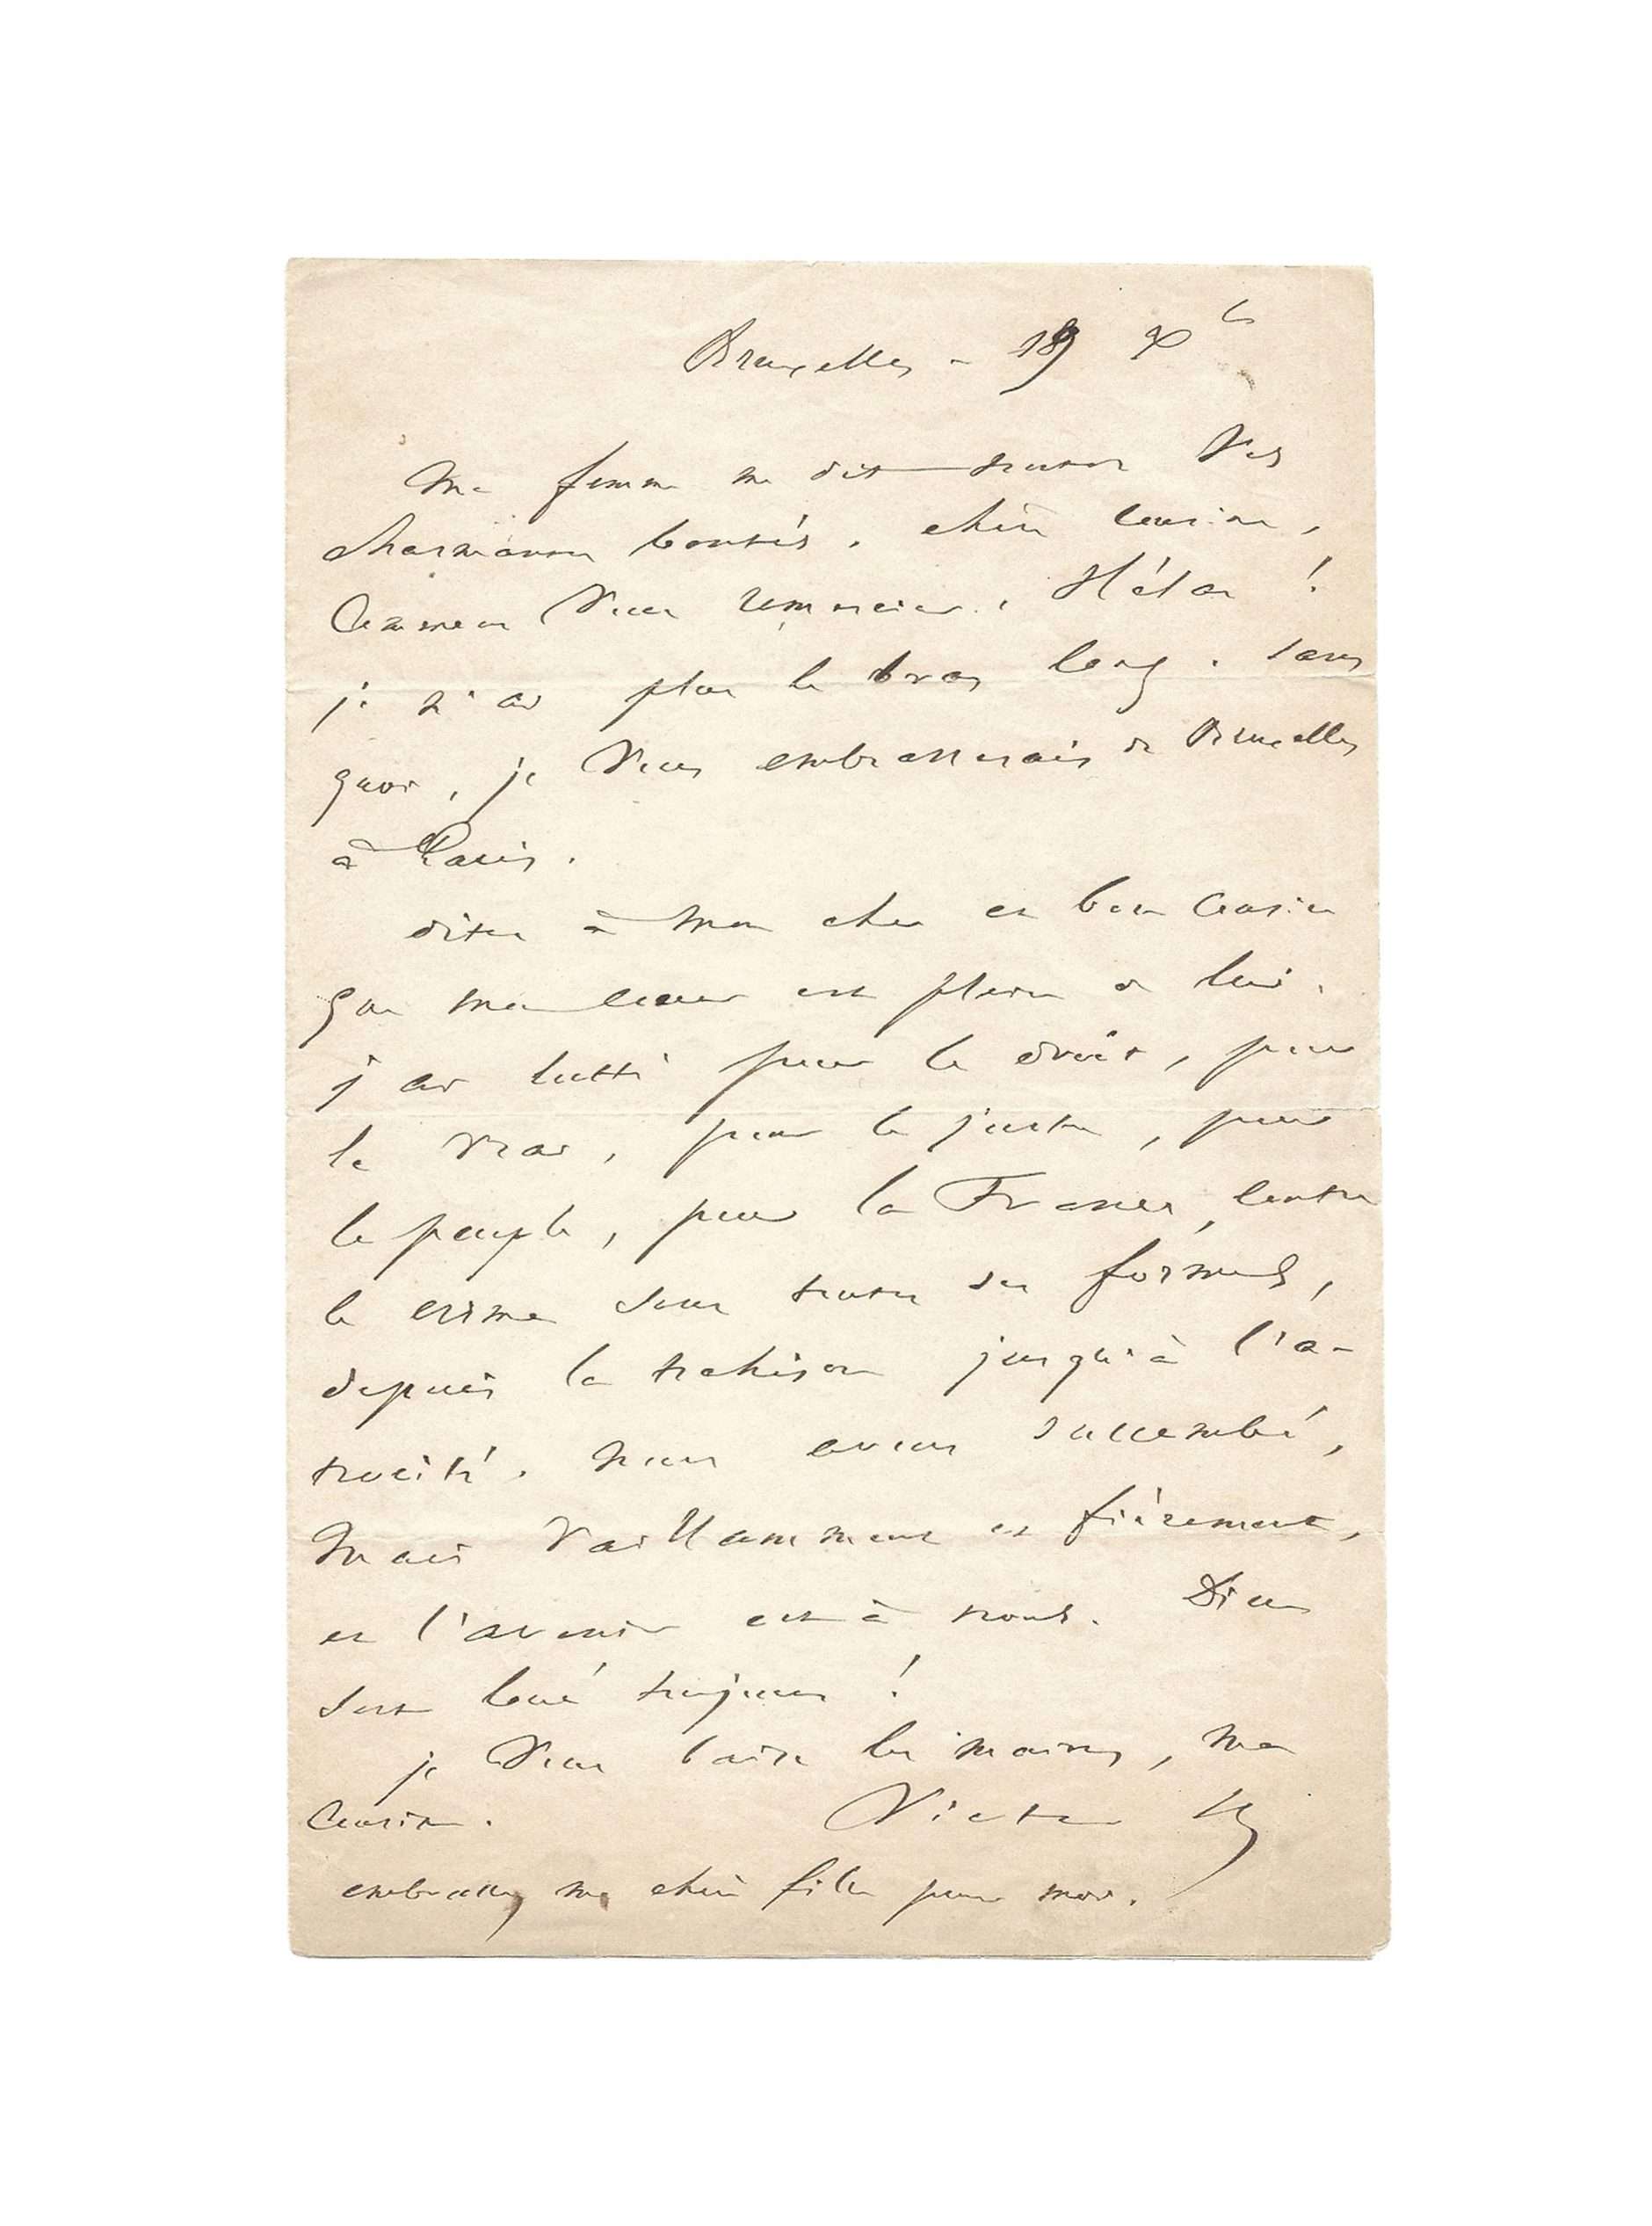 Bruxelles - 19 Xbre
Ma femme me dit toutes vos
charmantes bontés, chère cousine,
Comment vous remercier. Hélas !
je n'ai plus le bras long. Sans
quoi, je vous embrasserais de Bruxelles
à Paris.
dites à mon cher et bon cousin
que mon cœur est plein de lui.
j'ai lutté pour le droit, pour
le vrai, pour le juste, pour
le peuple, pour la France, contre
le crime sous toutes ses formes,
depuis la trahison jusqu'à l'a-
trocité. Nous avons succombé,
mais vaillamment et fièrement,
et l'avenir est à nous. Dieu
soit loué toujours !
je vous baise les mains, ma
Cousine. Victor H
embrassez ma chère fille pour moi.